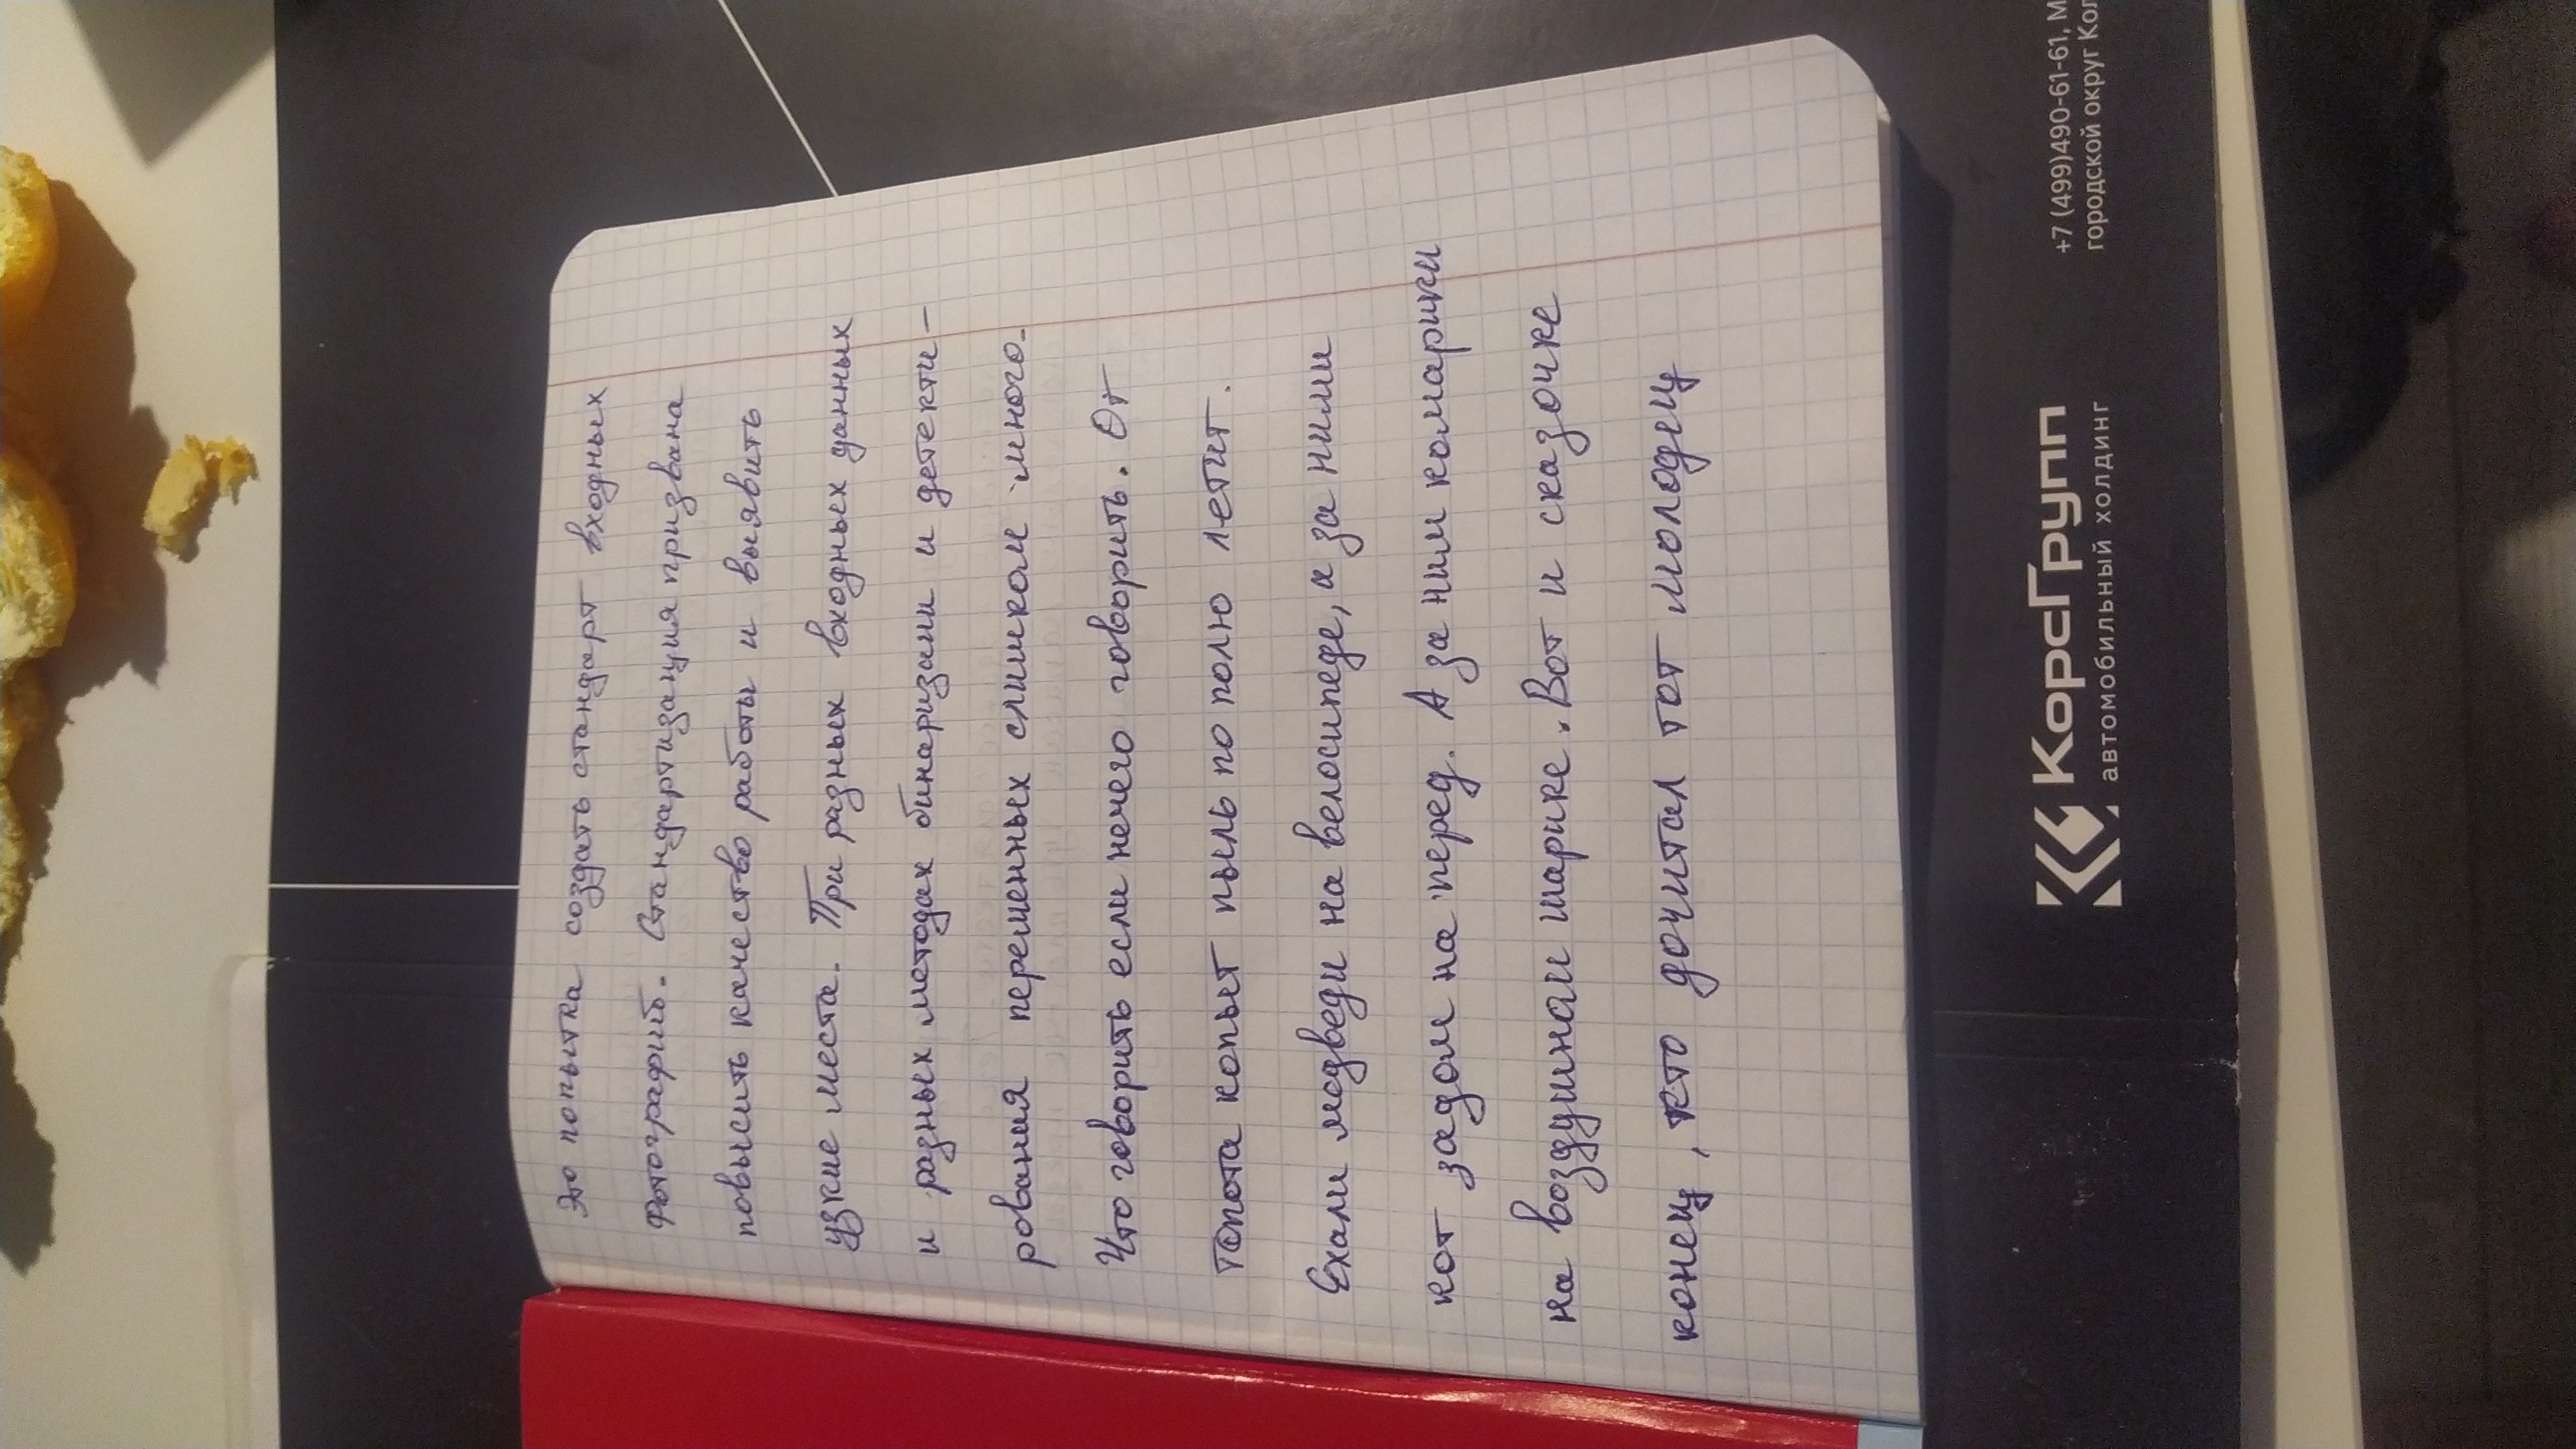 Это попытка создать стандарт входных
фотографий. Стандартизация призвана
повысить качество работы и выявить
узкие места. При разных входных данных
и разных методах бинаризаци и детекти-
рования переменных слишком много.
Что говорить если нечего говорить. От
топота копыт пыль по полю летит.
Ехали медведи на велосипеде, а за ними
кот задом на перед. А за ним комарики
на воздушном шарике. Вот и сказочке
конец, кто дочитал тот молодец
КорсГрупп
автомобильный холдинг
+7 (499)490-61-61, М
городской округ Кол